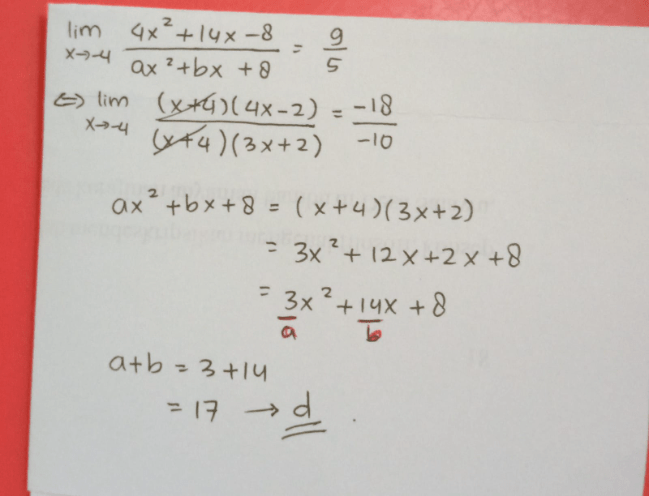 lim x→-4 (4x² + 14x - 8)/(ax² + bx + 8) = 9/5
⇔ lim x→-4 (x+4)(4x-2)/(x+4)(3x+2) = -18/-10
ax² + bx + 8 = (x+4)(3x+2)
= 3x² + 12x + 2x + 8
= 3x² + 14x + 8
a b
a+b = 3+14
= 17 → d